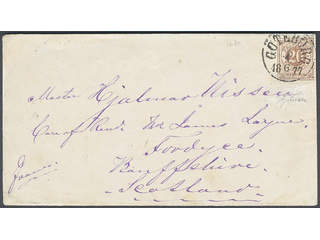 GÖTEBORG
18 6 77
Master Hjalmar Nissen
Care of Revd. Mr James Layne
Fordyce
Banffshire
Scotland